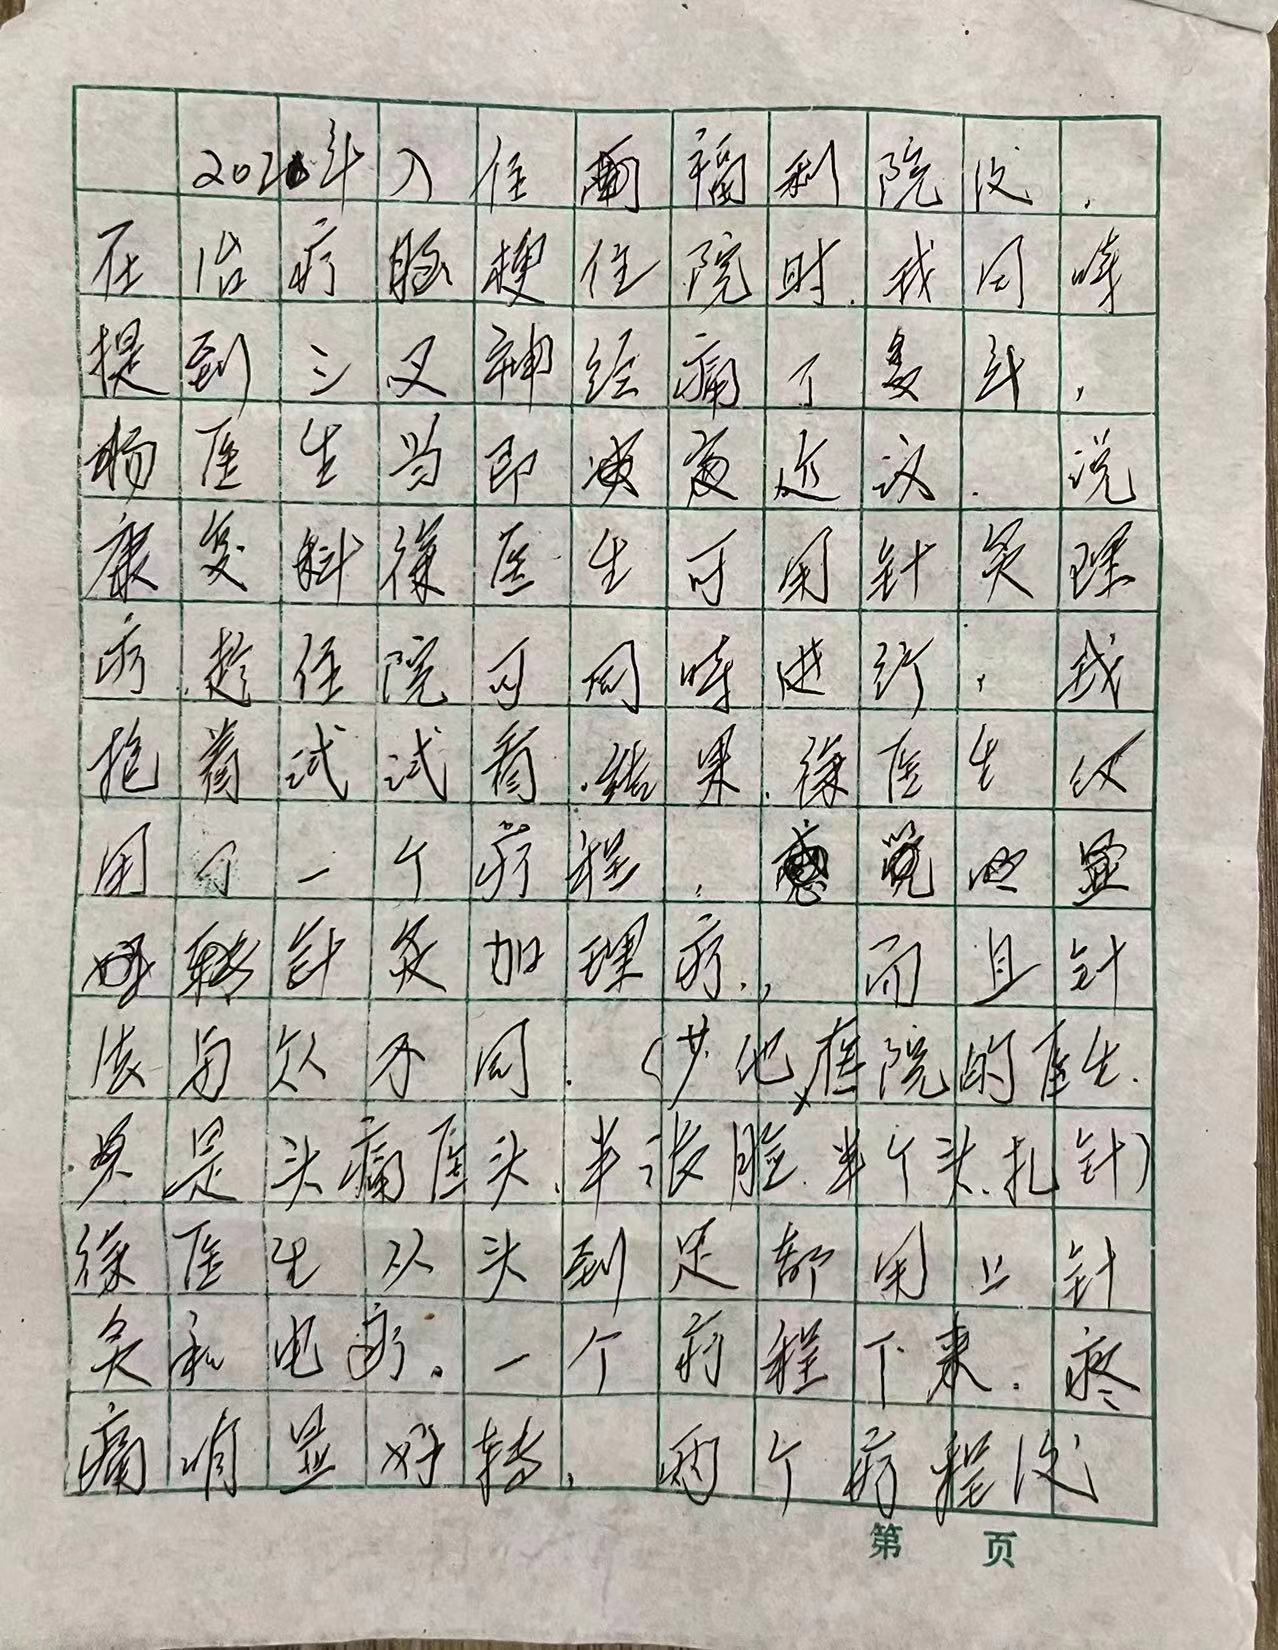 202年入住福利院后，
在治疗脑梗住院时.我同时
提到三叉神经痛了多年，
杨医生当即建议.说
康复科徐医生可用针灸理
疗.趁住院可同时进行，我
抱着试试看.结果.徐医生仅
用了一个疗程，感觉明显
好转针灸加理疗.，而且针
法与众不同.(其他医院的医生.
只是头痛医头.半张脸.半个头.扎针)
徐医生从头到足都用上针
灸和电疗。一个疗程下来.疼
痛明显好转，两个疗程后
第 页